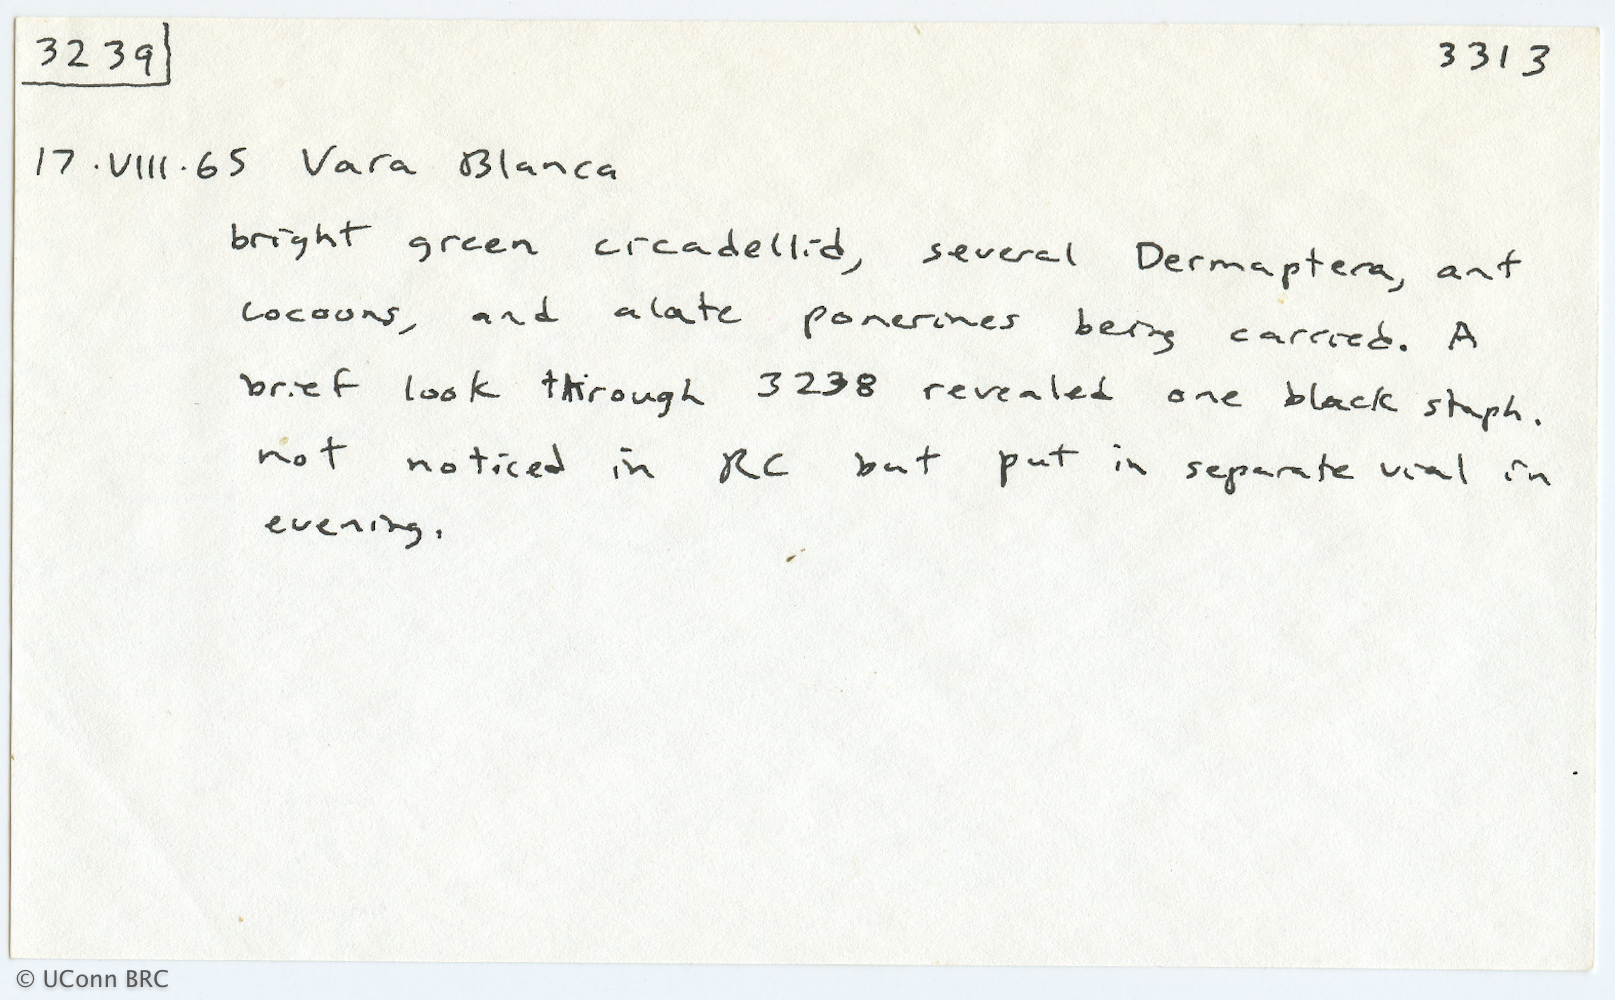 3239
3313
17.VIII.65 Vara Blanca
bright green cicadellid, several Dermaptera, ant
cocoons, and alate ponerines being carried. A
brief look through 3238 revealed one black staph.
not noticed in RC but put in separate vial in
evening.
© UConn BRC